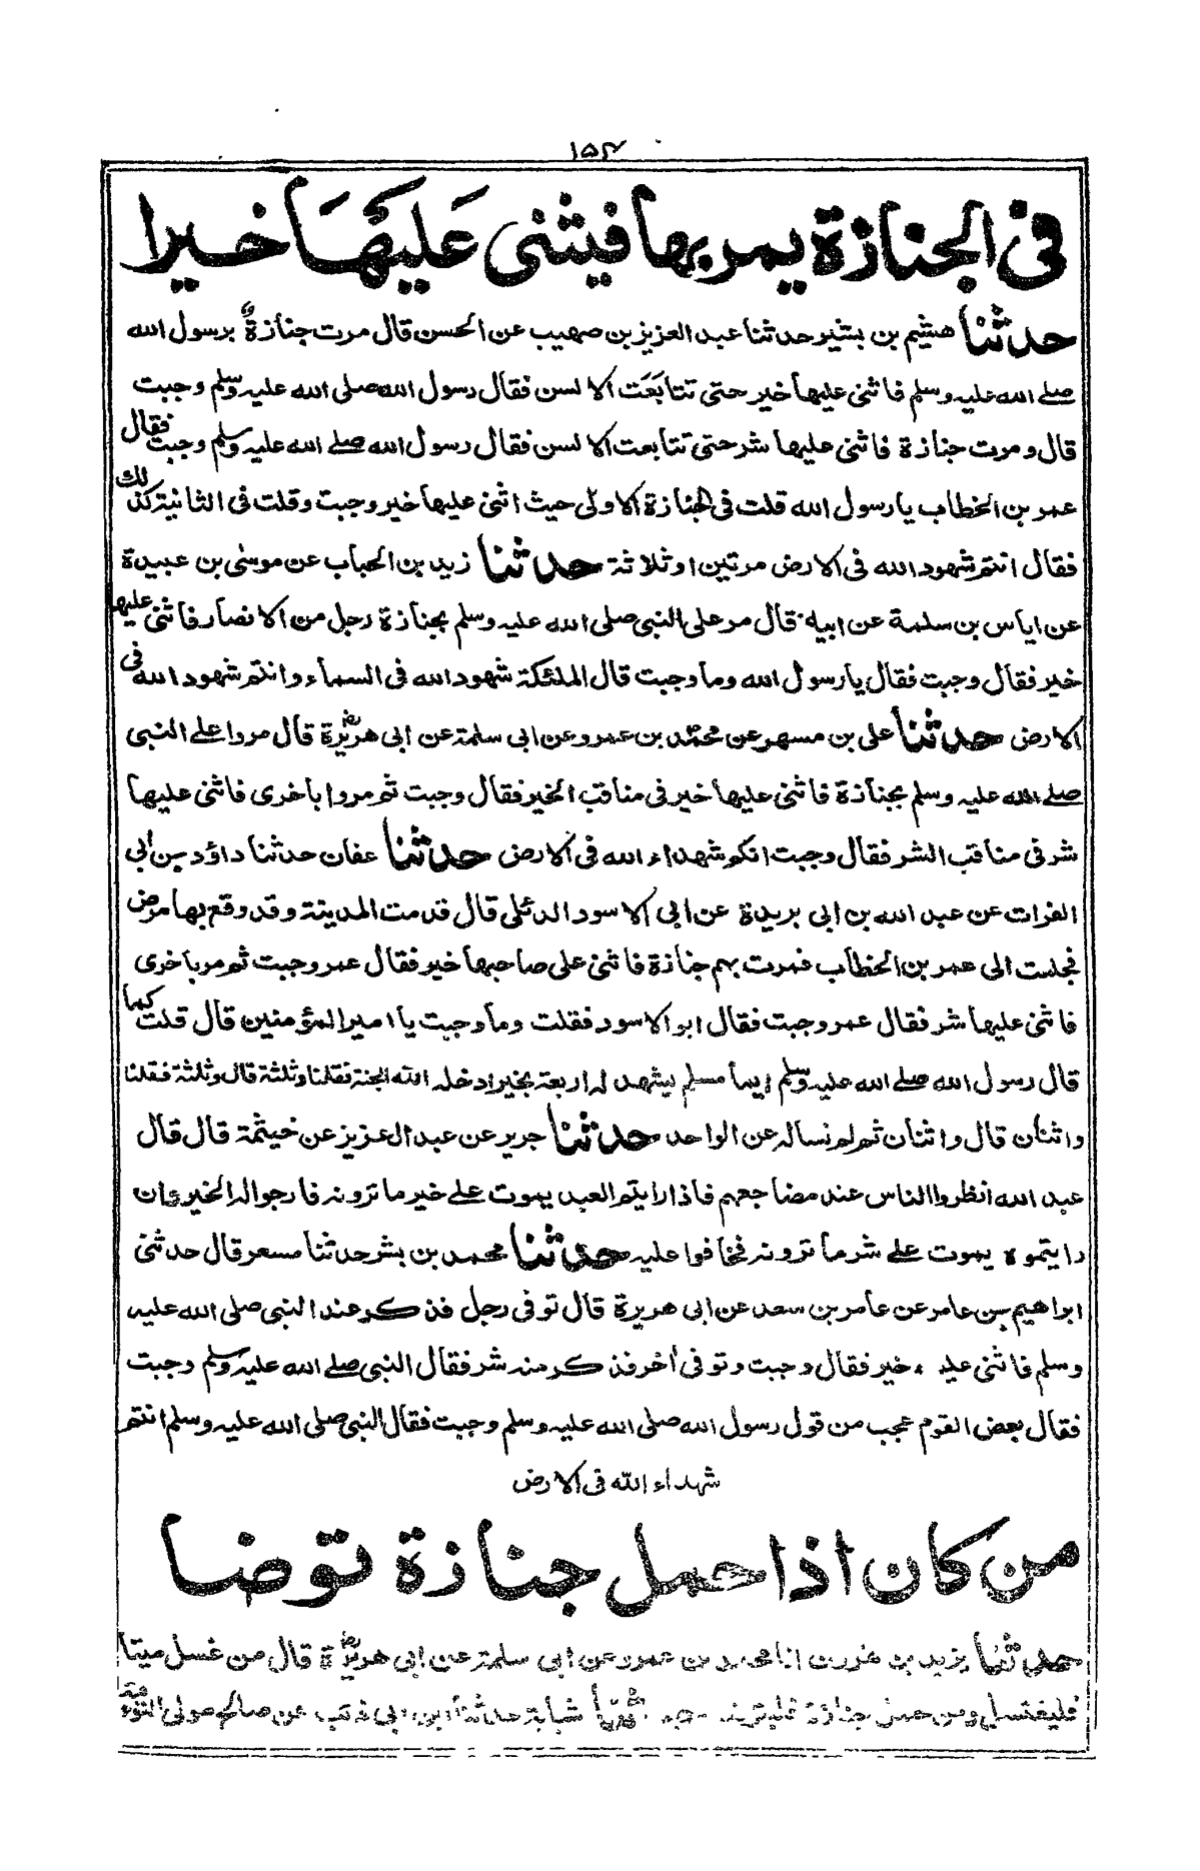 ١٥٤
فى الجنازة يمر بها فيثنى عليها خيرا
حدثنا هشيم بن بشير حدثنا عبد العزيز بن صهيب عن الحسن قال مرت جنازة برسول الله
صلے الله عليه وسلم فاثنى عليها خير حتى تتابعت الالسن فقال رسول الله صلى الله عليه وسلم وجبت
قال ومرت جنازة فاثنى عليها شر حتى تتابعت الالسن فقال رسول الله صلے الله عليه وسلم وجبت فقال
عمر بن الخطاب يا رسول الله قلت فى الجنازة الاولى حيث اثنى عليها خير وجبت وقلت فى الثانية كذلك
فقال انتم شهود الله فى الارض مرتين او ثلاثة حدثنا زيد بن الحباب عن موسى بن عبيدة
عن اياس بن سلمة عن ابيه قال مر على النبى صلى الله عليه وسلم بجنازة رجل من الانصار فاثنى عليها
خير فقال وجبت فقال يا رسول الله وما وجبت قال الملئكة شهود الله فى السماء وانتم شهود الله فى
الارض حدثنا على بن مسهر عن محمد بن عمرو عن ابى سلمة عن ابى هريرة قال مروا علے النبى
صلے الله عليه وسلم بجنازة فاثنى عليها خير فى مناقب الخير فقال وجبت ثم مروا بأخرى فاثنى عليها
شر فى مناقب الشر فقال وجبت انكم شهداء الله فى الارض حدثنا عفان حدثنا داؤد بن ابى
الفرات عن عبد الله بن ابى بريدة عن ابى الاسود الدئلى قال قدمت المدينة وقد وقع بها مرض
فجلست الى عمر بن الخطاب فمرت بهم جنازة فاثنى على صاحبها خير فقال عمر وجبت ثم مر باخرى
فاثنى عليها شر فقال عمر وجبت فقال ابو الاسود فقلت وما وجبت يا امير المؤمنين قال قلت كما
قال رسول الله صلے الله عليه وسلم ايما مسلم يشهد له اربعة بخير ادخله الله الجنة فقلنا وثلثة قال وثلثة فقلنا
واثنان قال واثنان ثم لم نساله عن الواحد حدثنا جرير عن عبد العزيز عن خيثمة قال قال
عبد الله انظروا الناس عند مضاجعهم فاذا رايتم العبد يموت علے خير ما ترونه فارجوا له الخير وان
رايتموه يموت علے شر ما ترونه فخافوا عليه حدثنا محمد بن بشر حدثنا مسعر قال حدثنى
ابراهيم بن عامر عن عامر بن سعد عن ابى هريرة قال توفى رجل فذكر عند النبى صلى الله عليه
وسلم فاثنى عليه خير فقال وجبت وتوفى أخر فذكر منه شر فقال النبى صلے الله عليه وسلم وجبت
فقال بعض القوم عجب من قول رسول الله صلى الله عليه وسلم وجبت فقال النبى صلى الله عليه وسلم انتم
شهداء الله فى الارض
من كان اذا حمل جنازة توضا
حدثنا يزيد بن هرون انا محمد بن عمرو عن ابى سلمة عن ابى هريرة قال من غسل ميتا
فليغتسل ومن حمل جنازة فليتوضا حدثنا شبابة حدثنا ابن ابى ذئب عن صالح مولى التوءمة